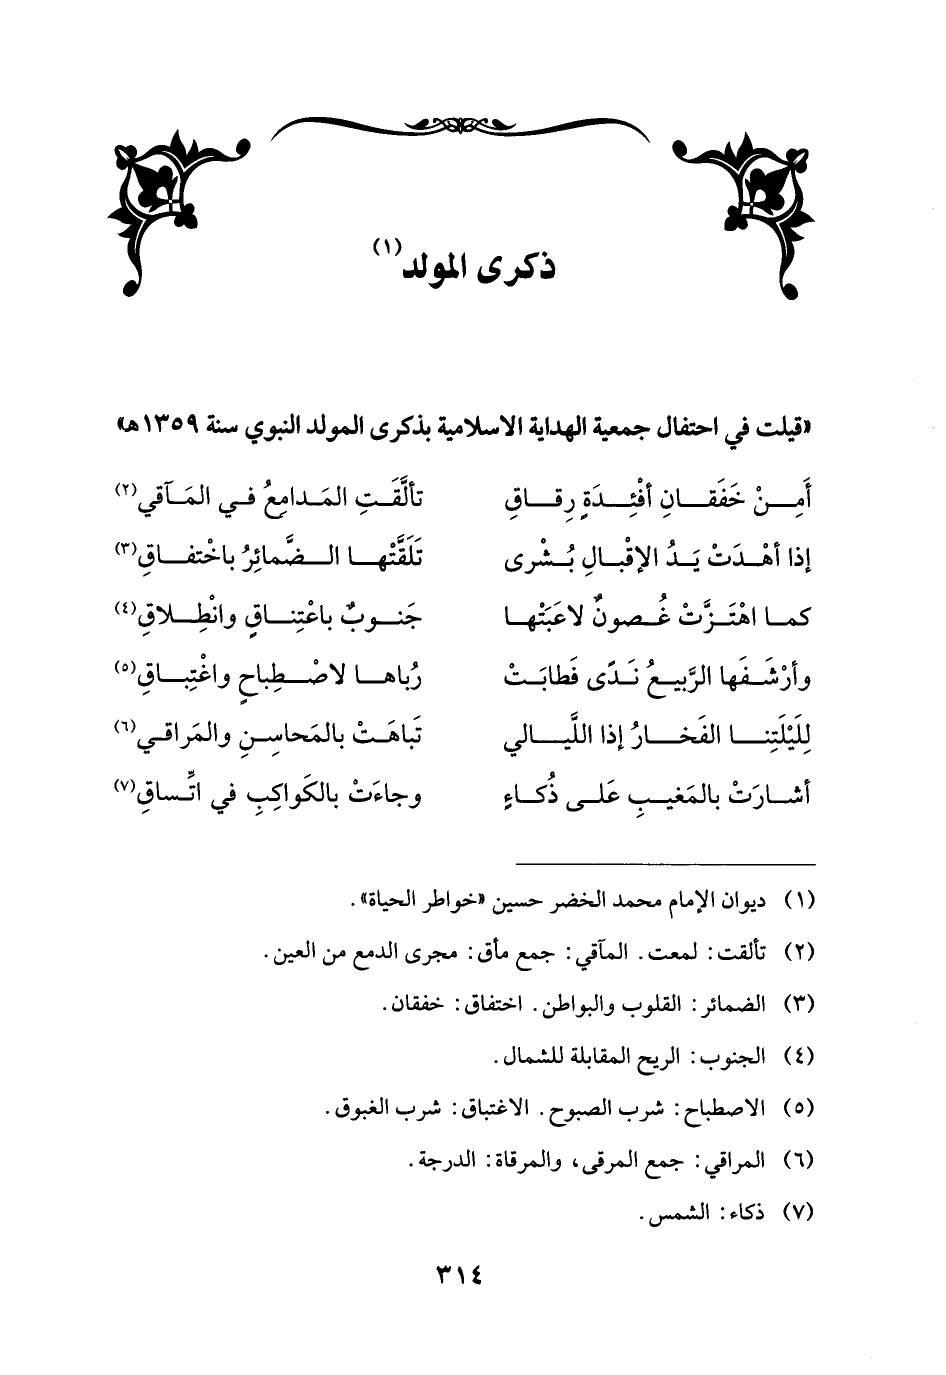 ذكرى المولد(١)
«قيلت في احتفال جمعية الهداية الاسلامية بذكرى المولد النبوي سنة ١٣٥٩هـ»
أَمِـنْ خَفَقَـانِ أفْئِـدَةٍ رِقـاقِ تألَّقَـتِ المَـدامِعُ فـي المَـآقي(٢)
إذا أهْـدَتْ يَـدُ الإقْبـالِ بُـشْرى تَلَقَّتْهـا الـضَّمائِرُ باخْتفـاقِ(٣)
كمـا اهْتَـزَّتْ غُـصونٌ لاعَبَتْهـا جَنـوبٌ باعْتِنـاقٍ وانْطِـلاقِ(٤)
وأرْشَـفَها الرَّبيـعُ نَـدًى فَطابَـتْ رُباهـا لاصْـطِباحٍ واغْتِبـاقِ(٥)
لِلَيْلَتِنـا الفَخـارُ إذا اللَّيـالي تَباهَـتْ بالمَحاسِـنِ والمَراقـي(٦)
أشـارَتْ بالمَغيـبِ عَلـى ذُكـاءٍ وجاءَتْ بالكَواكِبِ في اتِّساقِ(٧)
(١) ديوان الإمام محمد الخضر حسين «خواطر الحياة».
(٢) تألقت: لمعت. المآقي: جمع مأق: مجرى الدمع من العين.
(٣) الضمائر: القلوب والبواطن. اختفاق: خفقان.
(٤) الجنوب: الريح المقابلة للشمال.
(٥) الاصطباح: شرب الصبوح. الاغتباق: شرب الغبوق.
(٦) المراقي: جمع المرقى، والمرقاة: الدرجة.
(٧) ذكاء: الشمس.
٣١٤